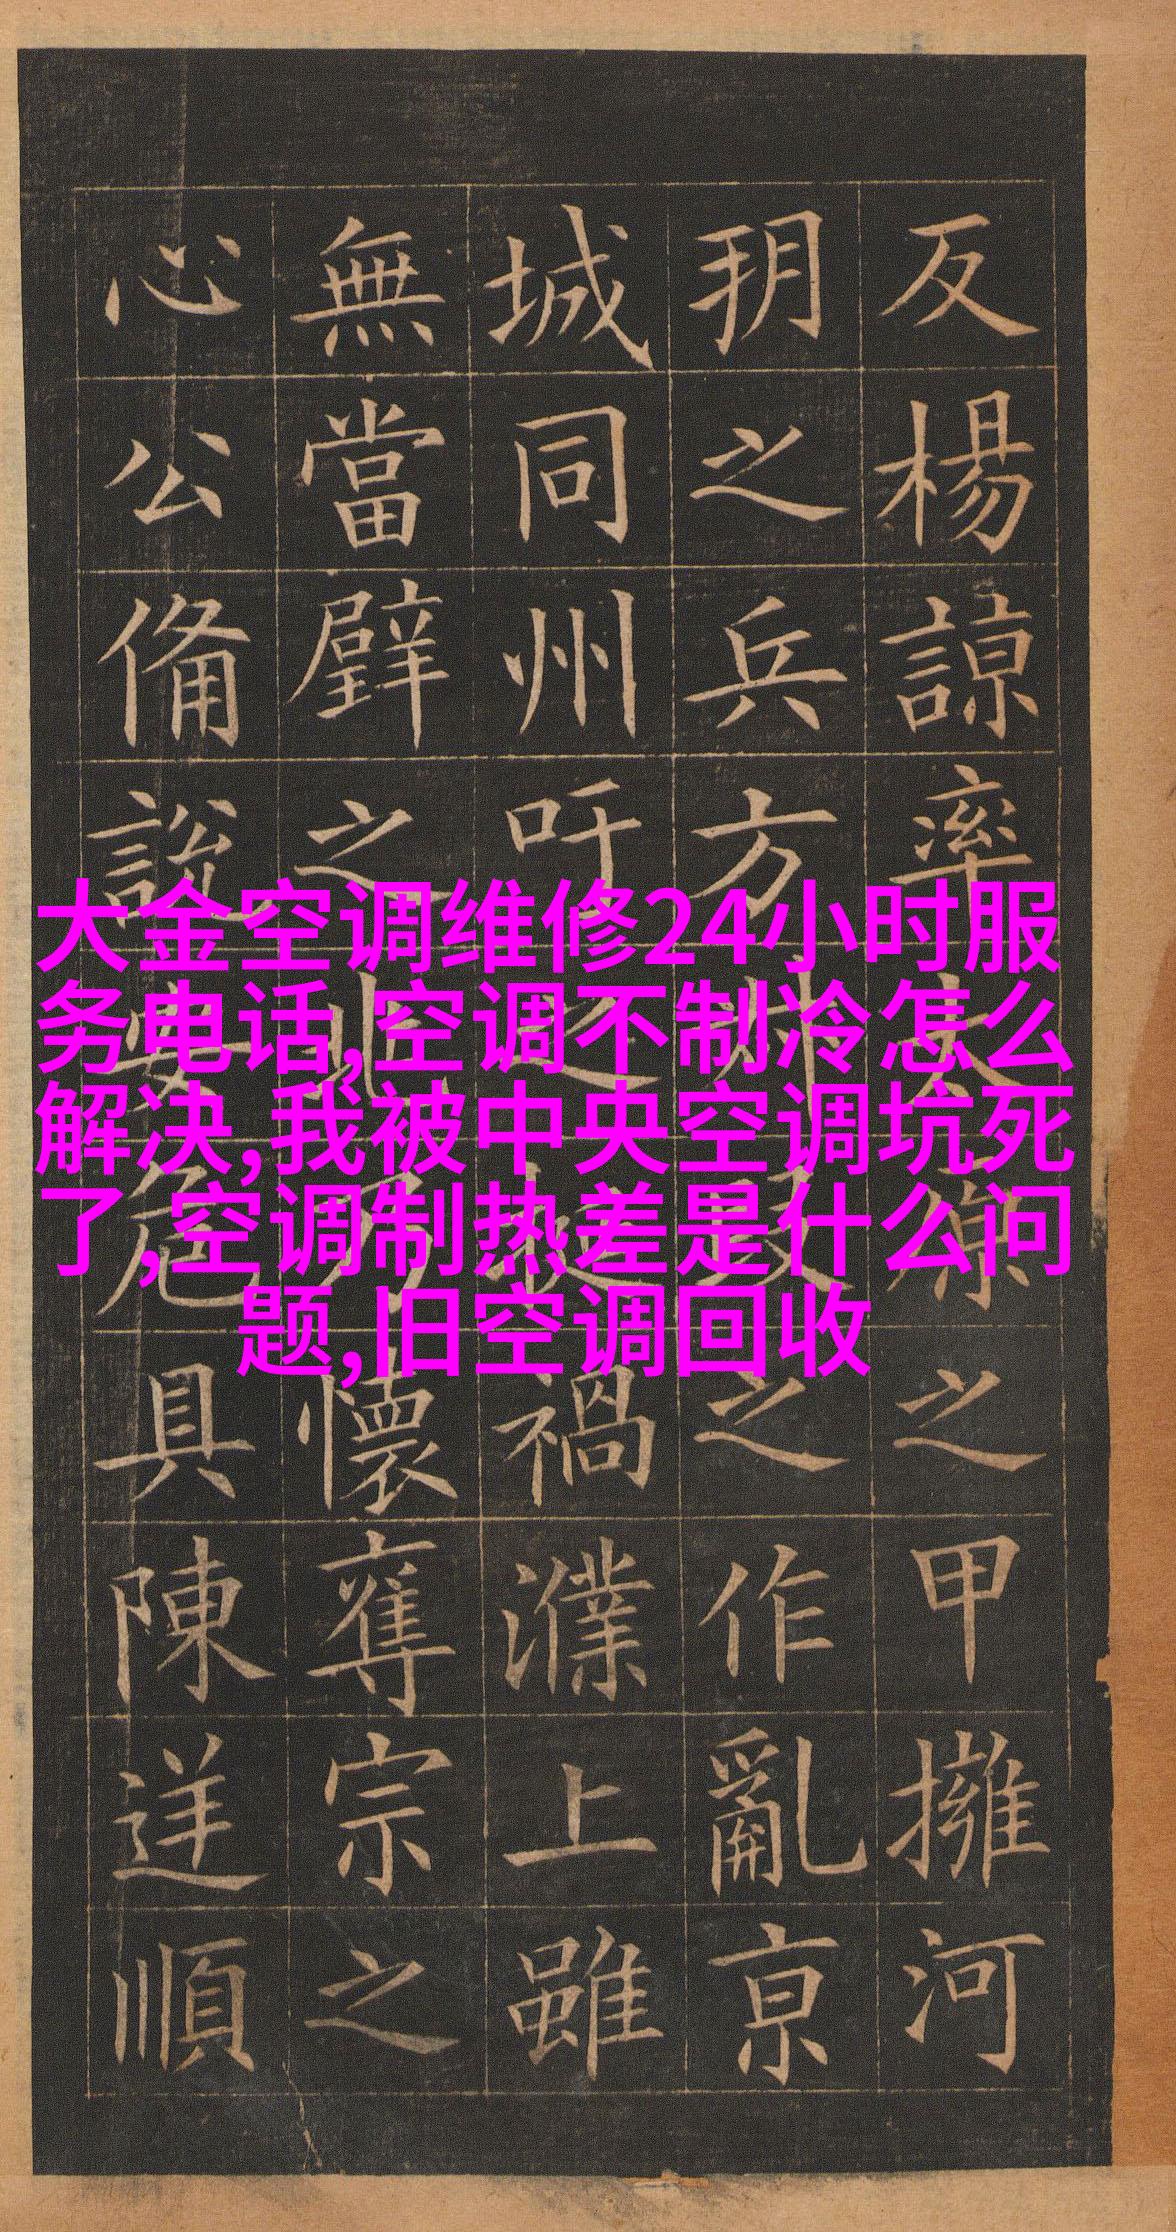 反楊諒率太原之甲擁河
玥之兵方之作亂京
城同州吁之禍濮上雖
無當璧之兆乃懷奪宗之
心公備說安危具陳逆順
大金空调维修24小时服
务电话,空调不制冷怎么
解决,我被中央空调坑死
了,空调制热差是什么问
题,旧空调回收